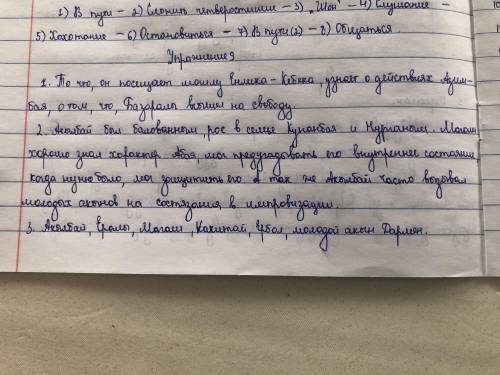 1) В пути – 2) Слонить четверостишие – 3) „Шон" – 4) Слушание –
5) Хохотание – 6) Остановиться – 7) В пути(2) – 8) Общаться.
Упражнение 9
1. То что, он посещает могилу Енлика - Кебека, узнает о действиях Азим-
бая, о том, что, Базаралы вышел на свободу.
2. Акылбай был балованным, рос в семье Кунанбая и Нурганым. Магаш
хорошо знал характер Абая, мог предугадывать его внутреннее состояние
когда нужно было, мог защитить его. А так же Акылбай часто вызывал
молодых акынов на состязания в импровизации.
3. Акылбай, Ералы, Магаш, Какитай, Ербол, молодой акын Дармен.